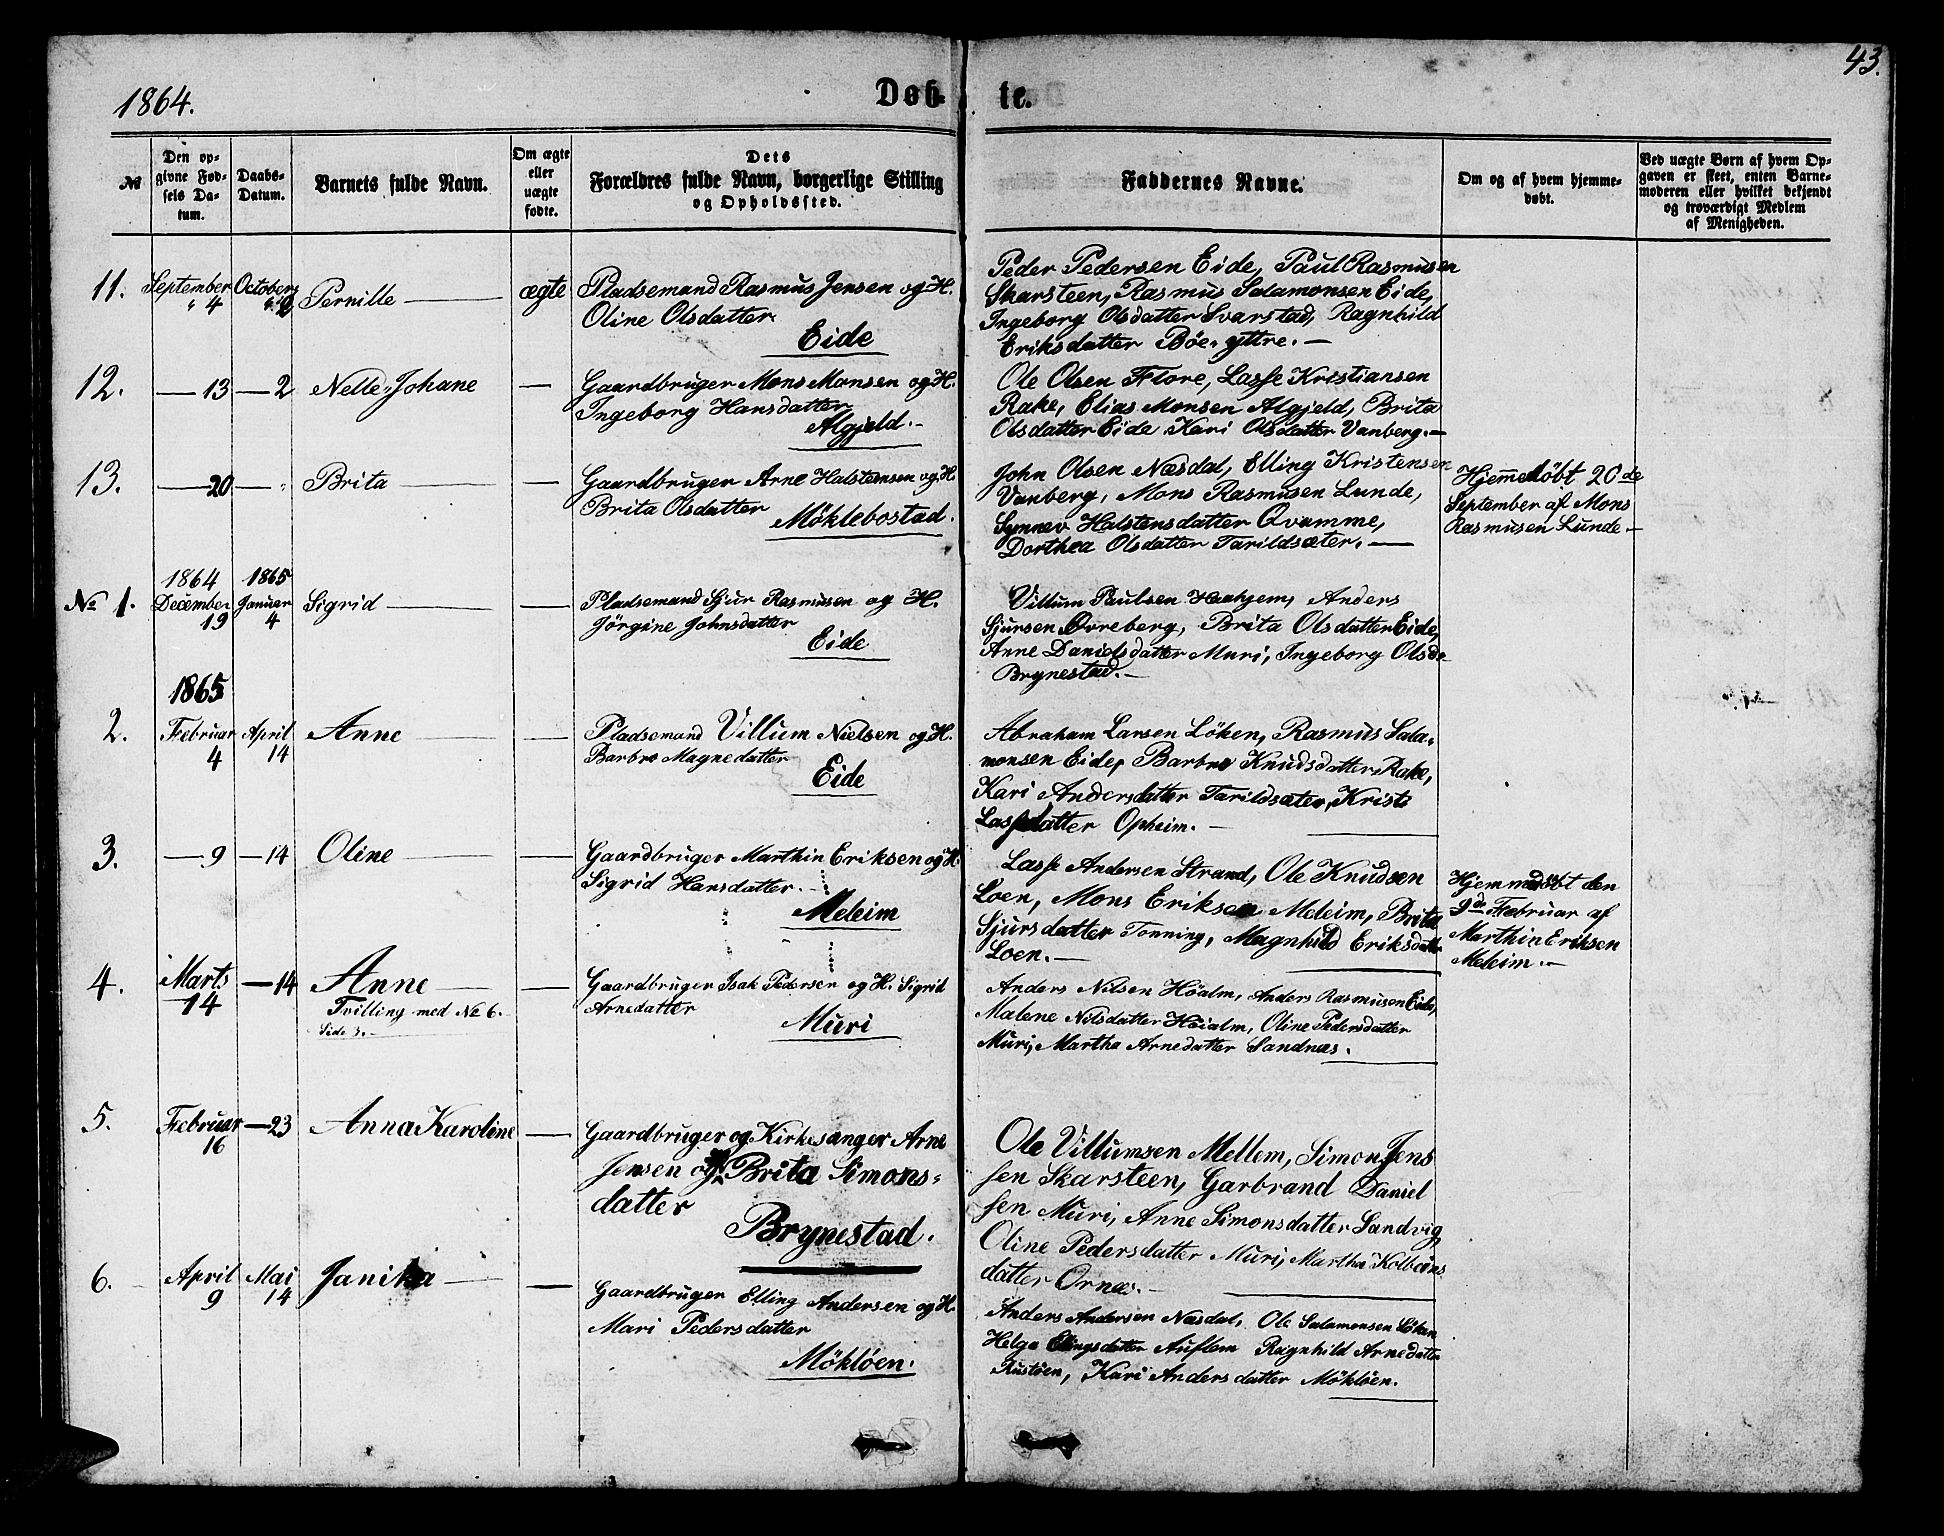 1864.
Døb-
te.
43.
№
Den op-
givne Fød-
sels Da-
tum.
Daabs-
Datum.
Barnets fulde Navn.
Om ægte
eller
uægte
fødte.
Dets
Forældres fulde Navn, borgerlige Stilling
og Opholdssted.
Faddernes Navne.
Om og af hvem hjemme-
døbt.
Ved uægte Børn af hvem Op-
gaven er skeet, enten Barne-
moderen eller hvilket bekjendt
og troværdigt Medlem
af Menigheden.
11.
September
" 4
October
2
Pernille
ægte
Pladsemand Rasmus Jensen og H.
Oline Olsdatter
Eide
Peder Pedersen Eide, Paul Rasmusen
Skarsteen, Rasmus Salamonsen Eide,
Ingeborg Olsdatter Svarstad, Ragnhild
Eriksdatter Böe-yttre. —
12.
— 13
— 2
Nelle-Johane
—
Gaardbruger Mons Monsen og H.
Ingeborg Hansdatter
Algjeld. -
Ole Olsen Flore, Lasse Kristiansen
Rake, Elias Monsen Algjeld, Brita
Olsdatter Eide, Kari Olsdatter Vanberg. —
13.
— 20
— "
Brita
—
Gaardbruger Arne Halstensen og H.
Brita Olsdatter
Möklebostad.
John Olsen Næsdal, Elling Kristensen
Vanberg, Mons Rasmusen Lunde,
Synnev Halstensdatter Qvamme,
Dorthea Olsdatter Tarildsæter. —
Hjemmedöbt 20de
September af Mons
Rasmusen Lunde. —
№ 1.
1864
December
19
1865
Januer
4
Sigrid
—
Pladsemand Sjur Rasmusen og H.
Jörgine Johnsdatter
Eide
Villum Paulsen Haahjem, Anders
Sjursen Övreberg, Brita Olsdatter Eide,
Anne Danielsdatter Muri, Ingeborg Olsd-
Brynestad. —
1865
2.
Februar
4
April
14
Anne
—
Pladsemand Villum Nielsen og H.
Barbro Magnedatter
Eide
Abraham Larsen Löken, Rasmus Sala-
monsen Eide, Barbro Knudsdatter Rake,
Kari Andersdatter Tarildsæter, Kristi
Lassedatter Opheim. —
3.
— 9
— 14
Oline
—
Gaardbruger Marthin Eriksen og H.
Sigrid Hansdatter. -
Meleim
Lasse Andersen Strand, Ole Knudsen
Loen, Mons Eriksen Meleim, Brita
Sjursdatter Tonning, Magnhild Eriksdatter
Loen. —
Hjemmedöbt den
9de Februar af
Marthin Eriksen
Meleim. -
4.
Marts
14
— 14
Anne
Tvilling med No 6.
Side 3. -
—
Gaardbruger Isak Pedersen og H. Sigrid
Arnedatter
Muri
Anders Nilsen Höialm, Anders Rasmusen Eide,
Malene Nilsdatter Höialm, Oline Pedersdatter
Muri, Martha Arnedatter Sandnæs.
5.
Februar
16
— 23
Anna Karoline
—
Gaardbruger og Kirkesanger Arne
Jensen og H. Brita Simons-
datter
Brynestad.
Ole Villumsen Mellem, Simon Jens
sen Skarsteen, Garbrand Daniel
sen Muri, Anne Simonsdatter Sandvig,
Oline Pedersdatter Muri, Martha Kolbeins
datter Ornæs. -
6.
April
9
Mai
14
Janika
—
Gaardbruger Elling Andersen og H.
Mari Pedersdatter
Möklöen.
Anders Andersen Næsdal, Ole Salamonsen Löken
Helga Ellingsdatter Auflem Ragnhild Arnedatter
Rustöen, Kari Andersdatter Möklöen.